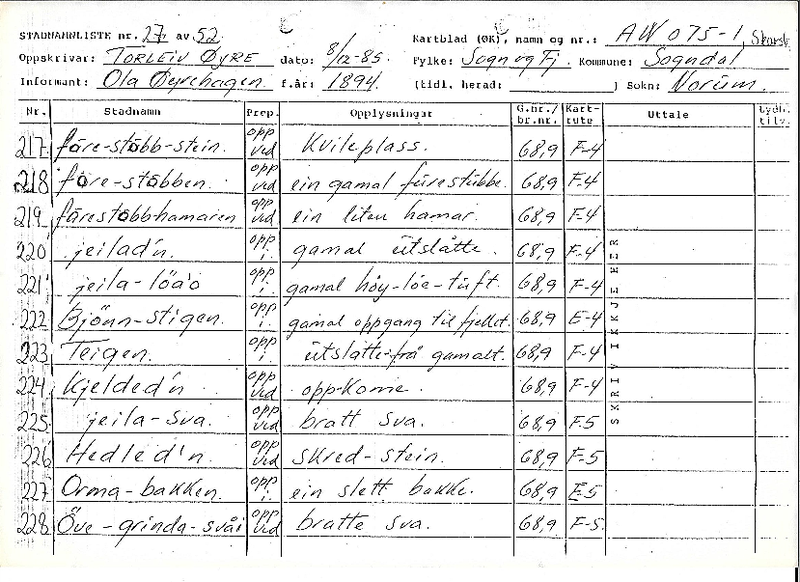 STADNAMNLISTE nr. 27 av 52 Kartblad (ØK), namn og nr.: AW 075-1, Skarsb
Oppskrivar: TORLEIV ØYRE dato: 8/12-85. Fylke: Sogn og Fj. Kommune: Sogndal
Informant: Ola Øyrehagen f.år: 1894. (tidl. herad: ) Sokn: Norum.
Nr. Stadnamn Prep. Opplysningar G.nr./br.nr. Kart-rute Uttale lydb. tilv.
217 fåre-støbb-stein. opp ved Kvileplass. 68,9 F-4
218 føre-støbben. opp ved ein gamal furestubbe. 68,9 F-4
219 fårestøbbhamaren opp ved ein liten hamar. 68,9 F-4
220 jeilad'n. opp i. gamal utslåtte. 68,9 F-4
221 jeila-löåo opp i. gamal höy-löe-tuft. 68,9 F-4
222 Bjönn-stigen. opp i. gamal oppgang til fjellet. 68,9 E-4
223 Teigen. opp i. utslåtte frå gamalt. 68,9 F-4
224 Kjelded'n opp ved opp-kome. 68,9 F-4
225 jeila-sva. opp ved bratt sva. 68,9 F-5
226 Hedled'n opp ved skred-stein. 68,9 F-5
227 Orma-bakken. opp i. ein slett bakke. 68,9 E-5
228 Öve-grinda-svåi opp ved bratte sva. 68,9 F-5
SKRIV IKKJE HER